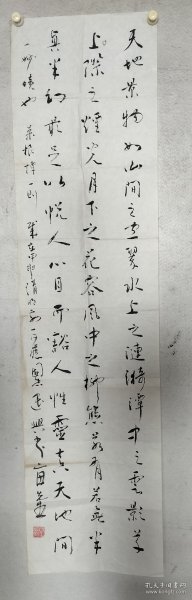 天地景物如山间之空翠水上之涟漪潭中之云影草
上之烟光月下之花容风中之柳态若有若无半
真半幻最足以悦人心目而豁人性灵真天地间
一妙境也 菜根谭一则 岁在甲申清明前